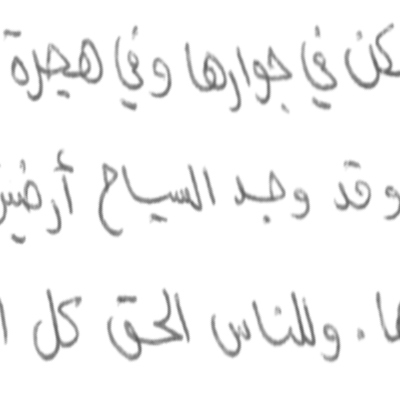 في جوارها وفي هجرة
وقد وجد السياح
وللناس الحق كل